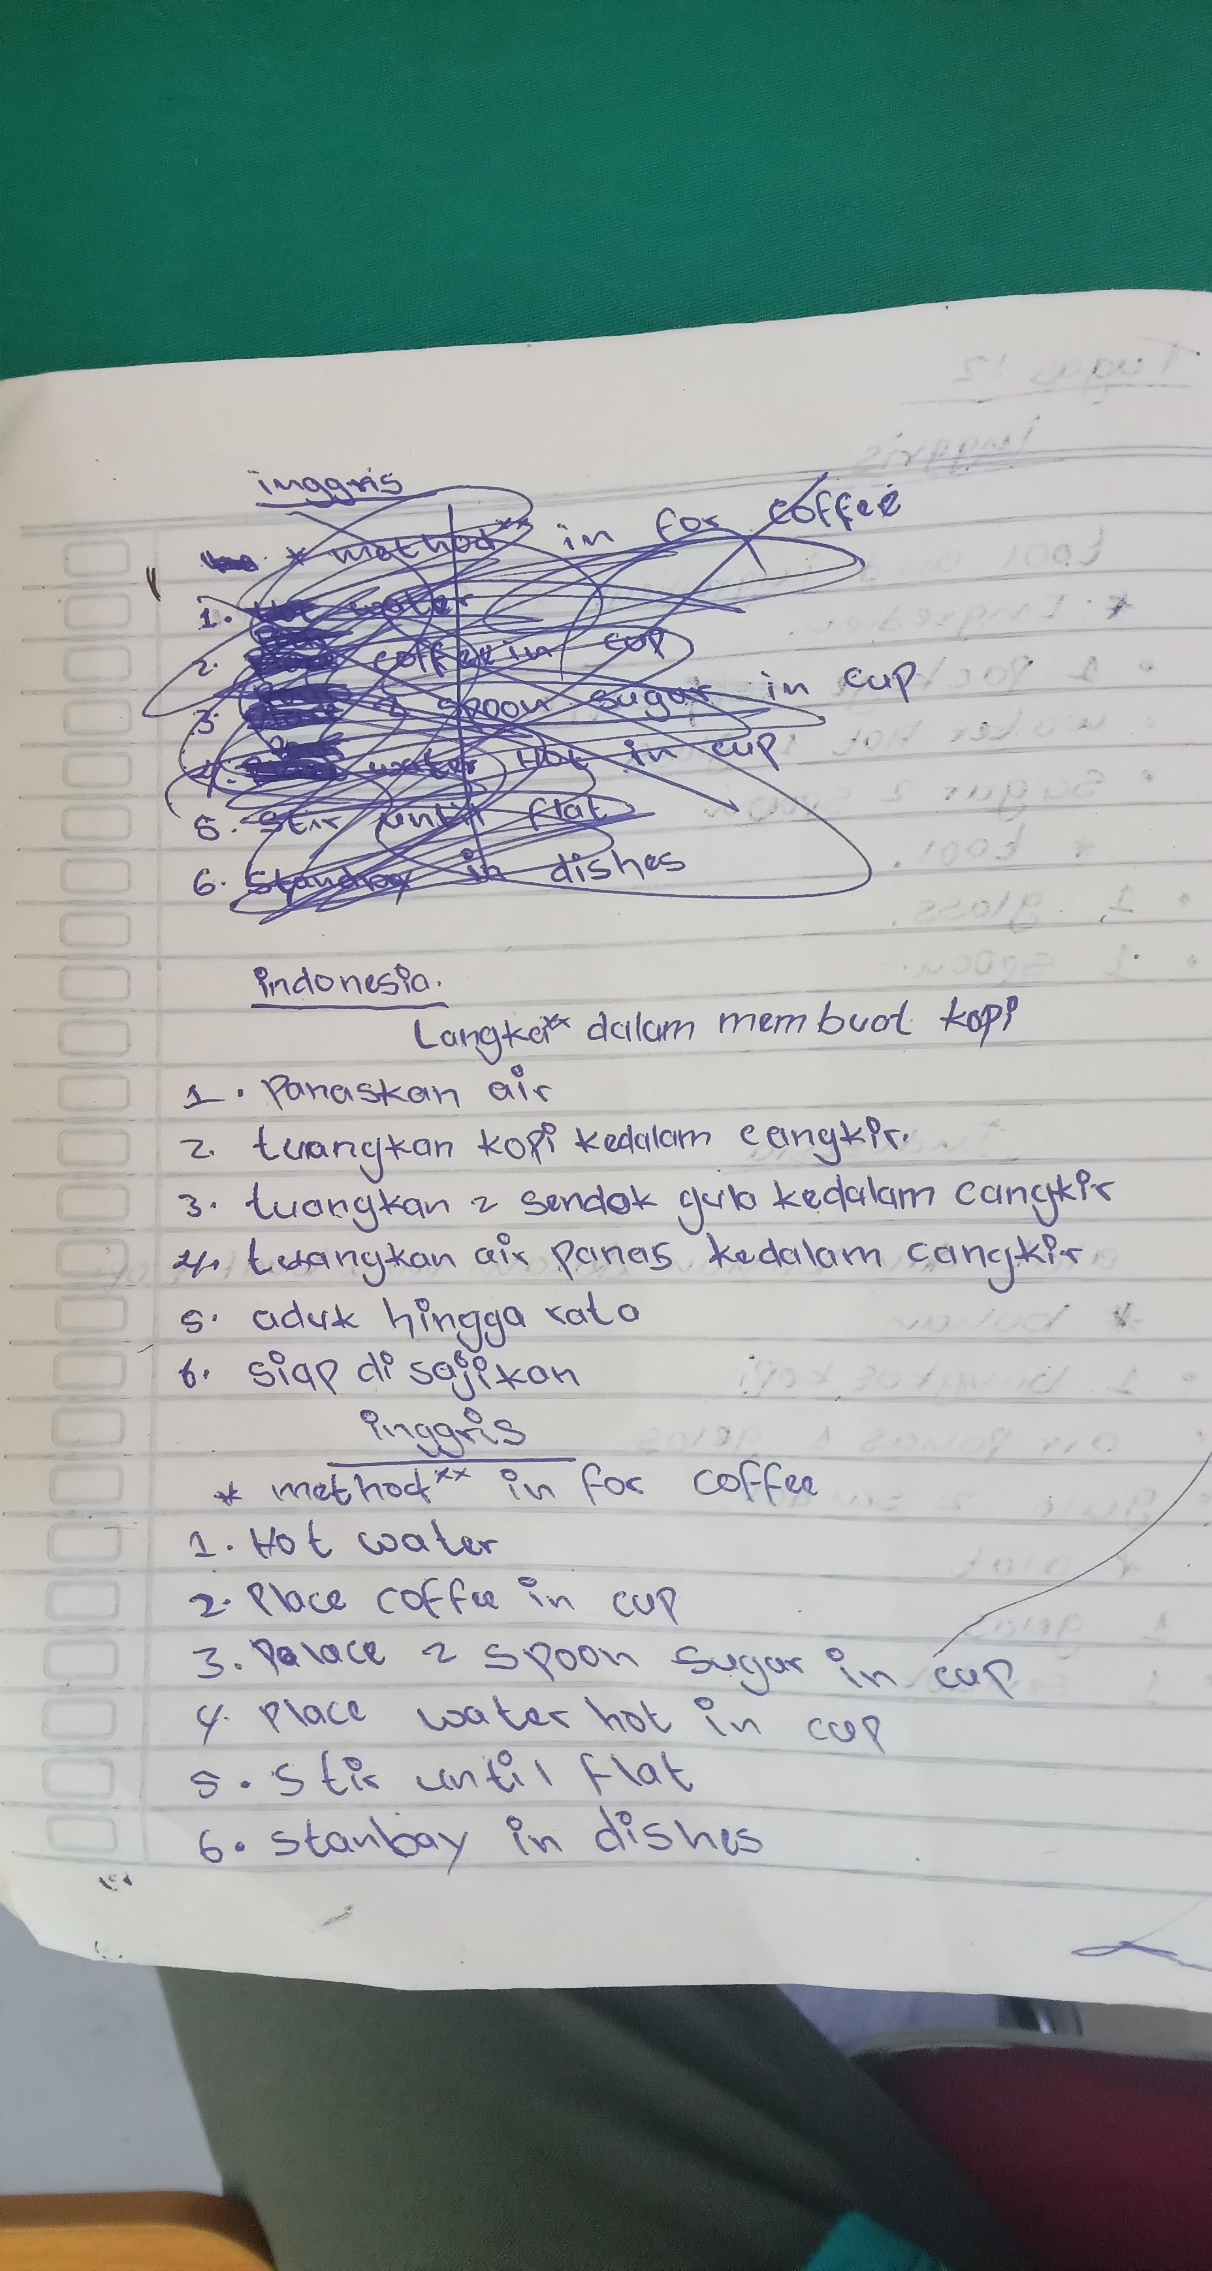 inggris
* method** in for coffee
1. Hot water
2. coffee in cup
3. 2 spoon sugar in cup
4. water Hot in cup
5. Stir until flat
6. Standbay in dishes
indonesia.
Langka** dalam membuat kopi
1. Panaskan air
2. tuangkan kopi kedalam cangkir.
3. tuangkan 2 sendok gula kedalam cangkir
4. tuangkan air panas kedalam cangkir
5. aduk hingga rata
6. siap di sajikan
inggris
* method** in for coffee
1. Hot water
2. Place coffee in cup
3. Palace 2 spoon sugar in cup
4. Place water hot in cup
5. Stir until flat
6. stanbay in dishes